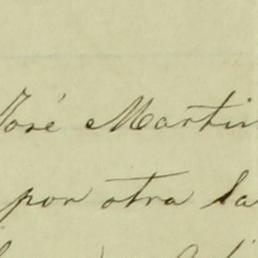 José Martin
por otra la